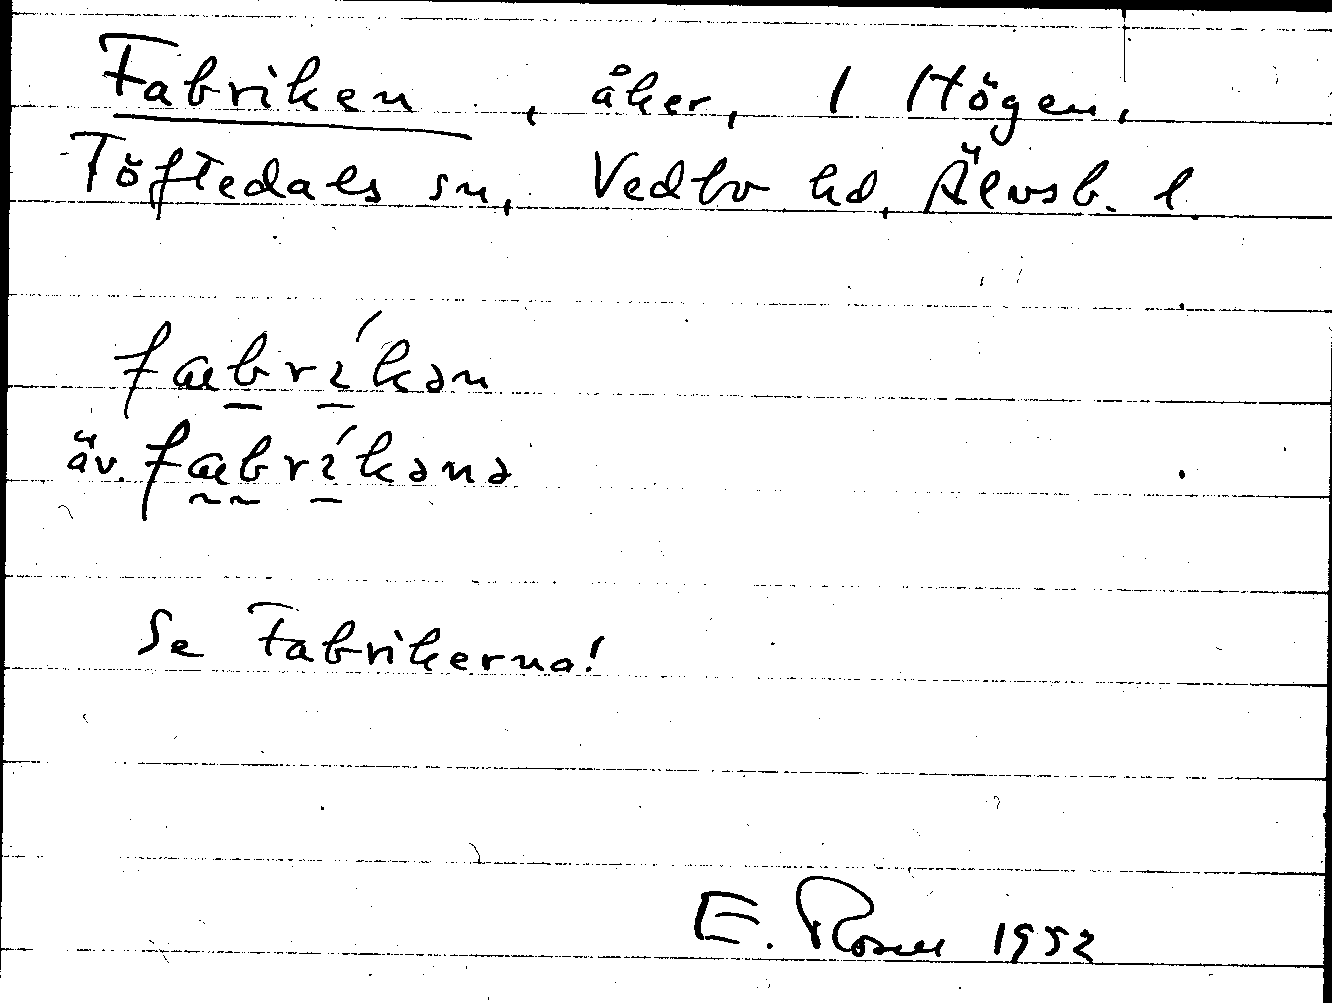 Fabriken, åker, 1 Högen,
Töftedals sn, Vedbo hd, Älvsb. l.
fabríkən
äv. fabríkənə
Se Fabrikerna!
E. Rosell 1952